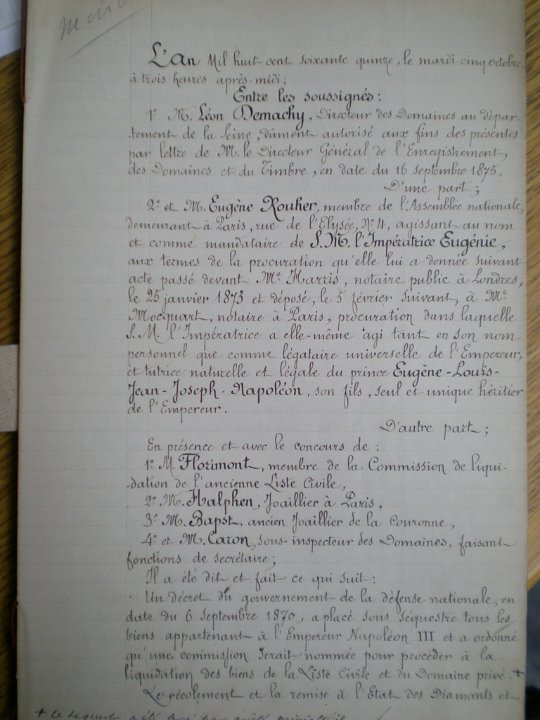 L'An Mil huit cent soixante quinze, le mardi cinq octobre,
à trois heures après-midi;
Entre les soussignés:
1º M. Léon Demachy, Directeur des Domaines au dépar-
tement de la Seine, dûment autorisé aux fins des présentes
par lettre de M. le Directeur Général de l'Enregistrement,
des Domaines et du Timbre, en date du 16 septembre 1875,
D'une part;
2º et M. Eugène Rouher, membre de l'Assemblée nationale,
demeurant à Paris, rue de l'Elysée, Nº 4, agissant au nom
et comme mandataire de S. M. l'Impératrice Eugénie,
aux termes de la procuration qu'elle lui a donnée suivant
acte passé devant Me Harris, notaire public à Londres,
le 25 janvier 1873 et déposé, le 5 février suivant, à Me
Mocquart, notaire à Paris, procuration dans laquelle
S. M. l'Impératrice a elle-même agi tant en son nom
personnel que comme légataire universelle de l'Empereur,
et tutrice naturelle et légale du prince Eugène-Louis-
Jean-Joseph-Napoléon, son fils, seul et unique héritier
de l'Empereur.
D'autre part;
En présence et avec le concours de:
1º M. Florimont, membre de la Commission de liqui-
dation de l'ancienne Liste Civile,
2º M. Halphen, Joaillier à Paris,
3º M. Bapst, ancien Joaillier de la Couronne,
4º et M. Caron, sous-inspecteur des Domaines, faisant
fonctions de secrétaire;
Il a été dit et fait ce qui suit:
Un décret du gouvernement de la défense nationale, en
date du 6 septembre 1870, a placé sous séquestre tous les
biens appartenant à l'Empereur Napoléon III et a ordonné
qu'une commission serait nommée pour procéder à la
liquidation des biens de la Liste Civile et du Domaine privé. +
Le récolement et la remise à l'Etat des Diamants et